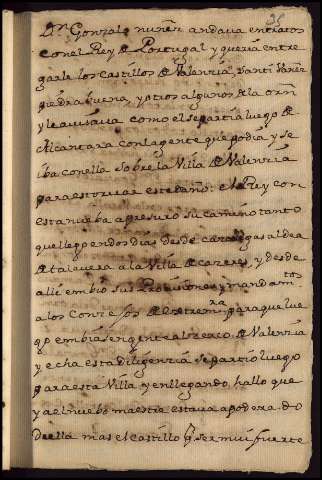 25
Dn Gonzalo nuñez andava entratos
con el Rey de Portugal y queria entre
garle los castillos de Valenzia, Santi bañez
piedra buena, y otros algunos de la orn
y le avisava como el se partia luego de
Alcantara con la gente que podia y se
iba con ella sobre la Villa de Valenzia
para estorvar este daño: el Rey con
esta nueba apresuro su camino tanto
que llego en dos dias desde aldea
de talavera a la Villa de cazeres, y desde
alli embio sus Provisiones y mandamtos
a los Conzejos de Estremra para que lue
go embiasen gente al zerco de Valenzia
y echa esta diligenzia se partio luego
para esta Villa, y en llegando, hallo que
ya el nuebo maestre estava apodera do
de ella mas el castillo q ser mui fuerte